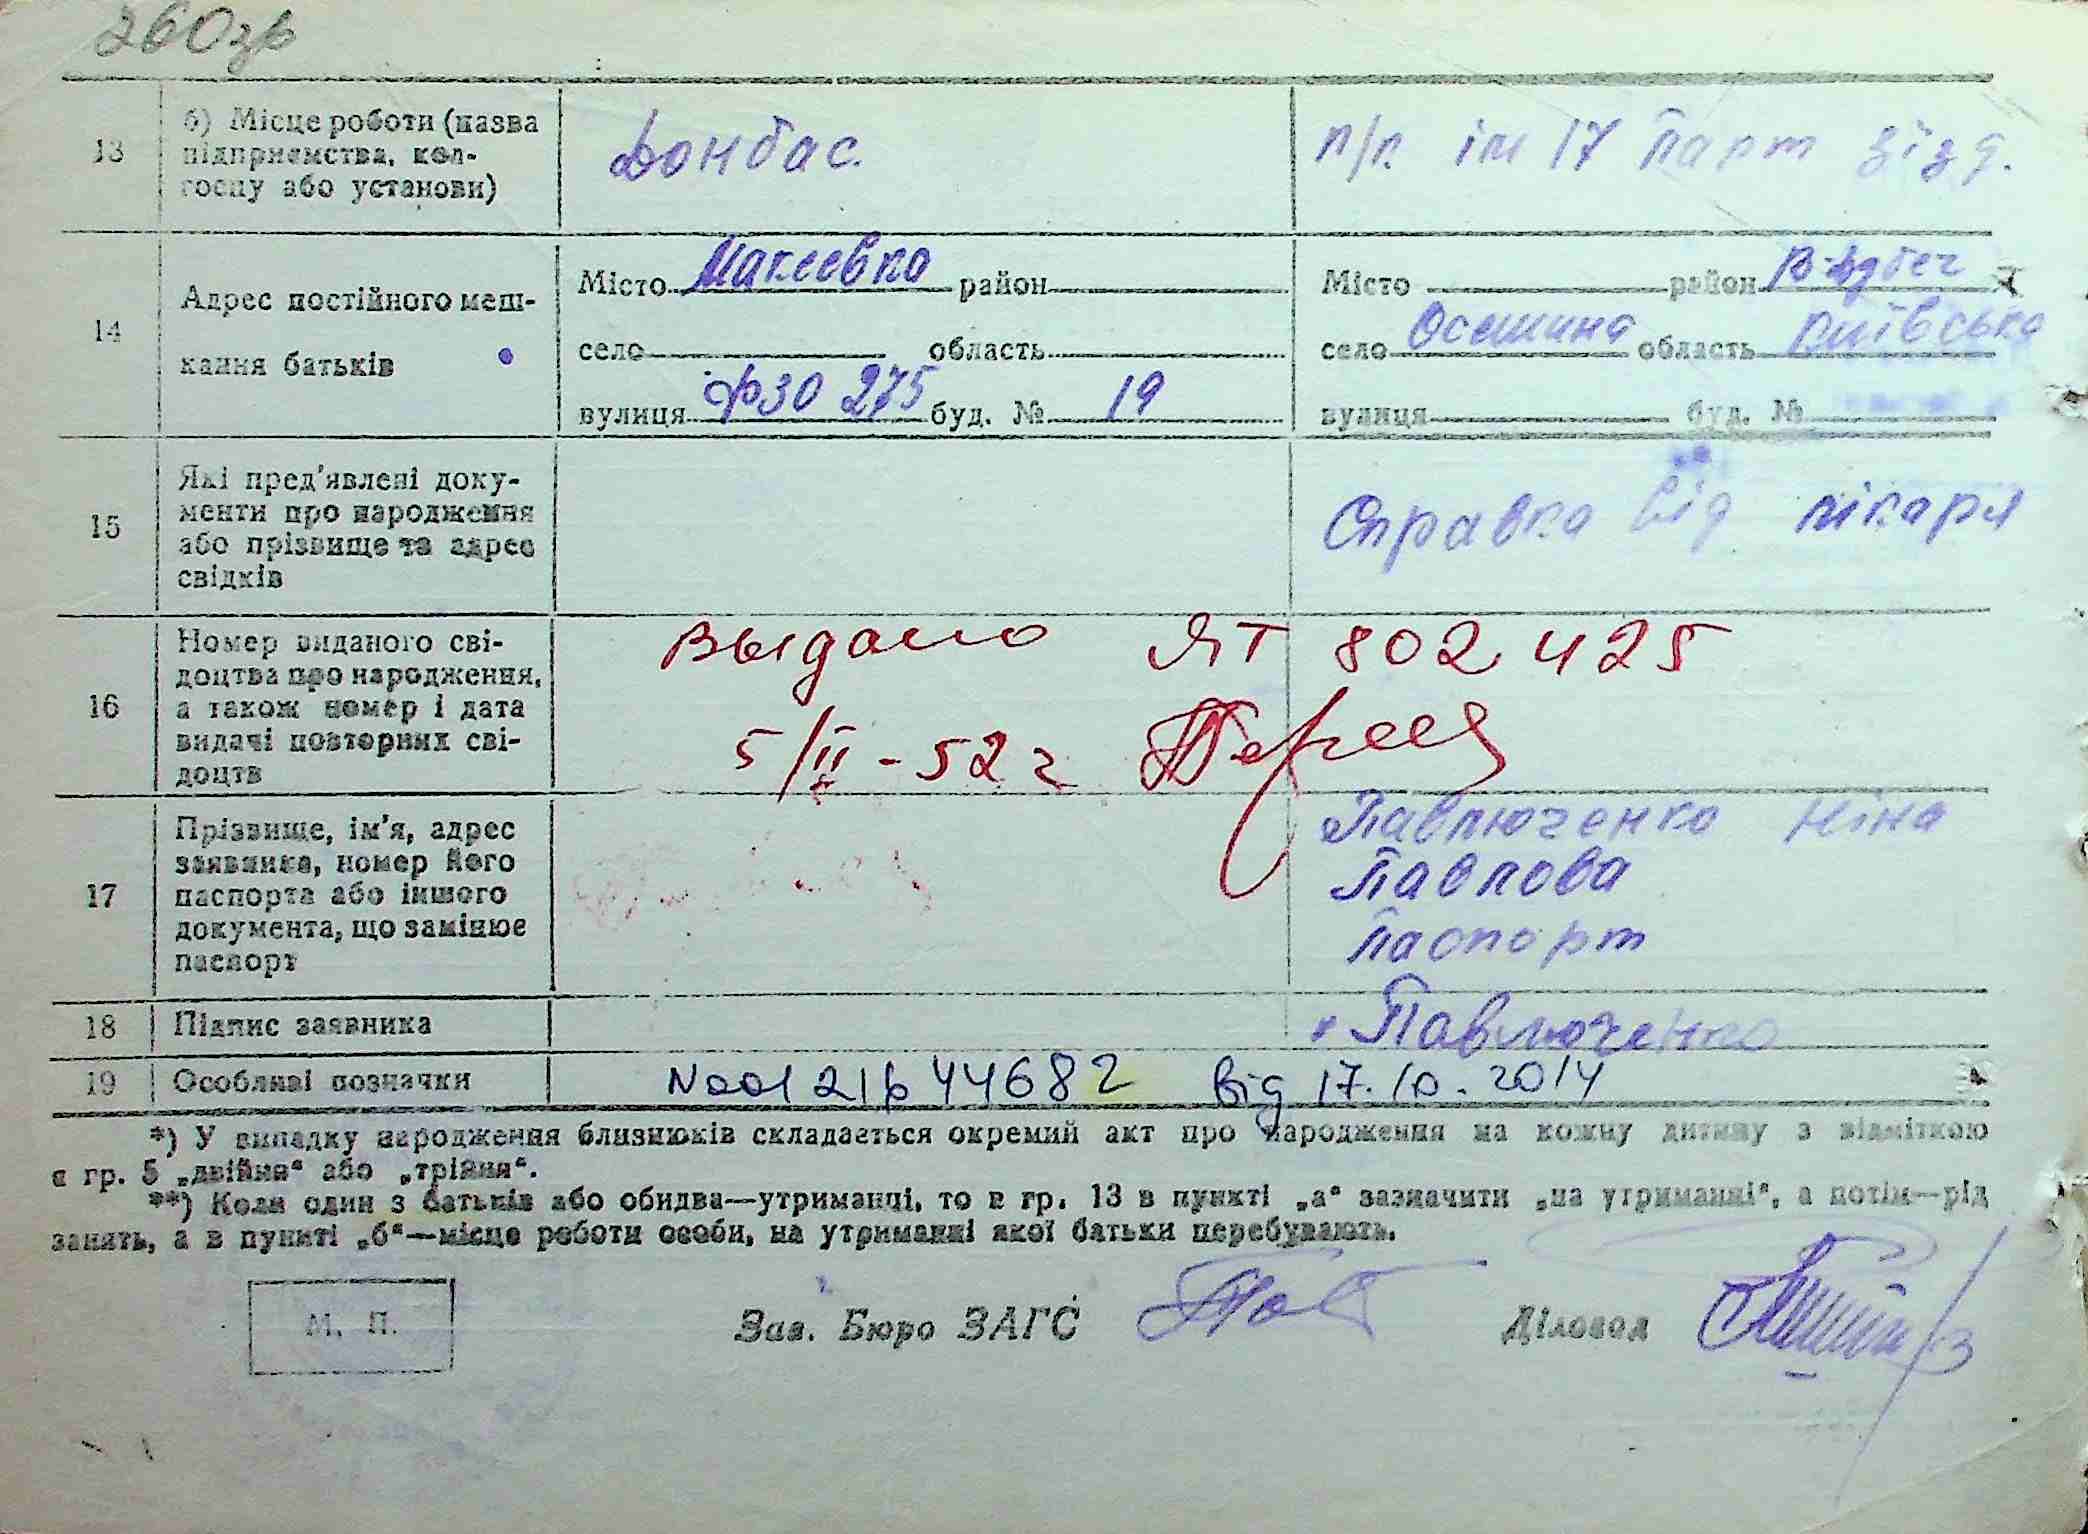 260зр
13 б) Місце роботи (назва підприємства, кол-госпу або установи) Донбас п/п. ім 17 парт зізд.
14 Адрес постійного меш-кання батьків
Місто Макеевка район Місто район В-Дубеч
село область село Осещина область Київська
вулиця ФЗО 275 буд. № 19 вулиця буд. №
15 Які пред'явлені доку-
менти про народження
або прізвище та адрес
свідків
Справка від лікаря
16 Номер виданого сві-
доцтва про народження,
а також номер і дата
видачі повторних сві-
доцтв
Выдано ЯТ 802425
5/II-52 г
17 Прізвище, ім'я, адрес
заявника, номер його
паспорта або іншого
документа, що замінює
паспорт
Павлюченко Ніна
Павлова
паспорт
18 Підпис заявника Павлюченко
19 Особливі позначки №00121644682 від 17.10.2014
*) У випадку народження близнюків складається окремий акт про народження на кожну дитину з відміткою
в гр. 5 „двійня“ або „трійня“.
**) Коли один з батьків або обидва—утриманці, то в гр. 13 в пункті „а“ зазначити „на утриманні“, а потім—рід
занять, а в пункті „б“—місце роботи особи, на утриманні якої батьки перебувають.
М. П. Зав. Бюро ЗАГС Діловод